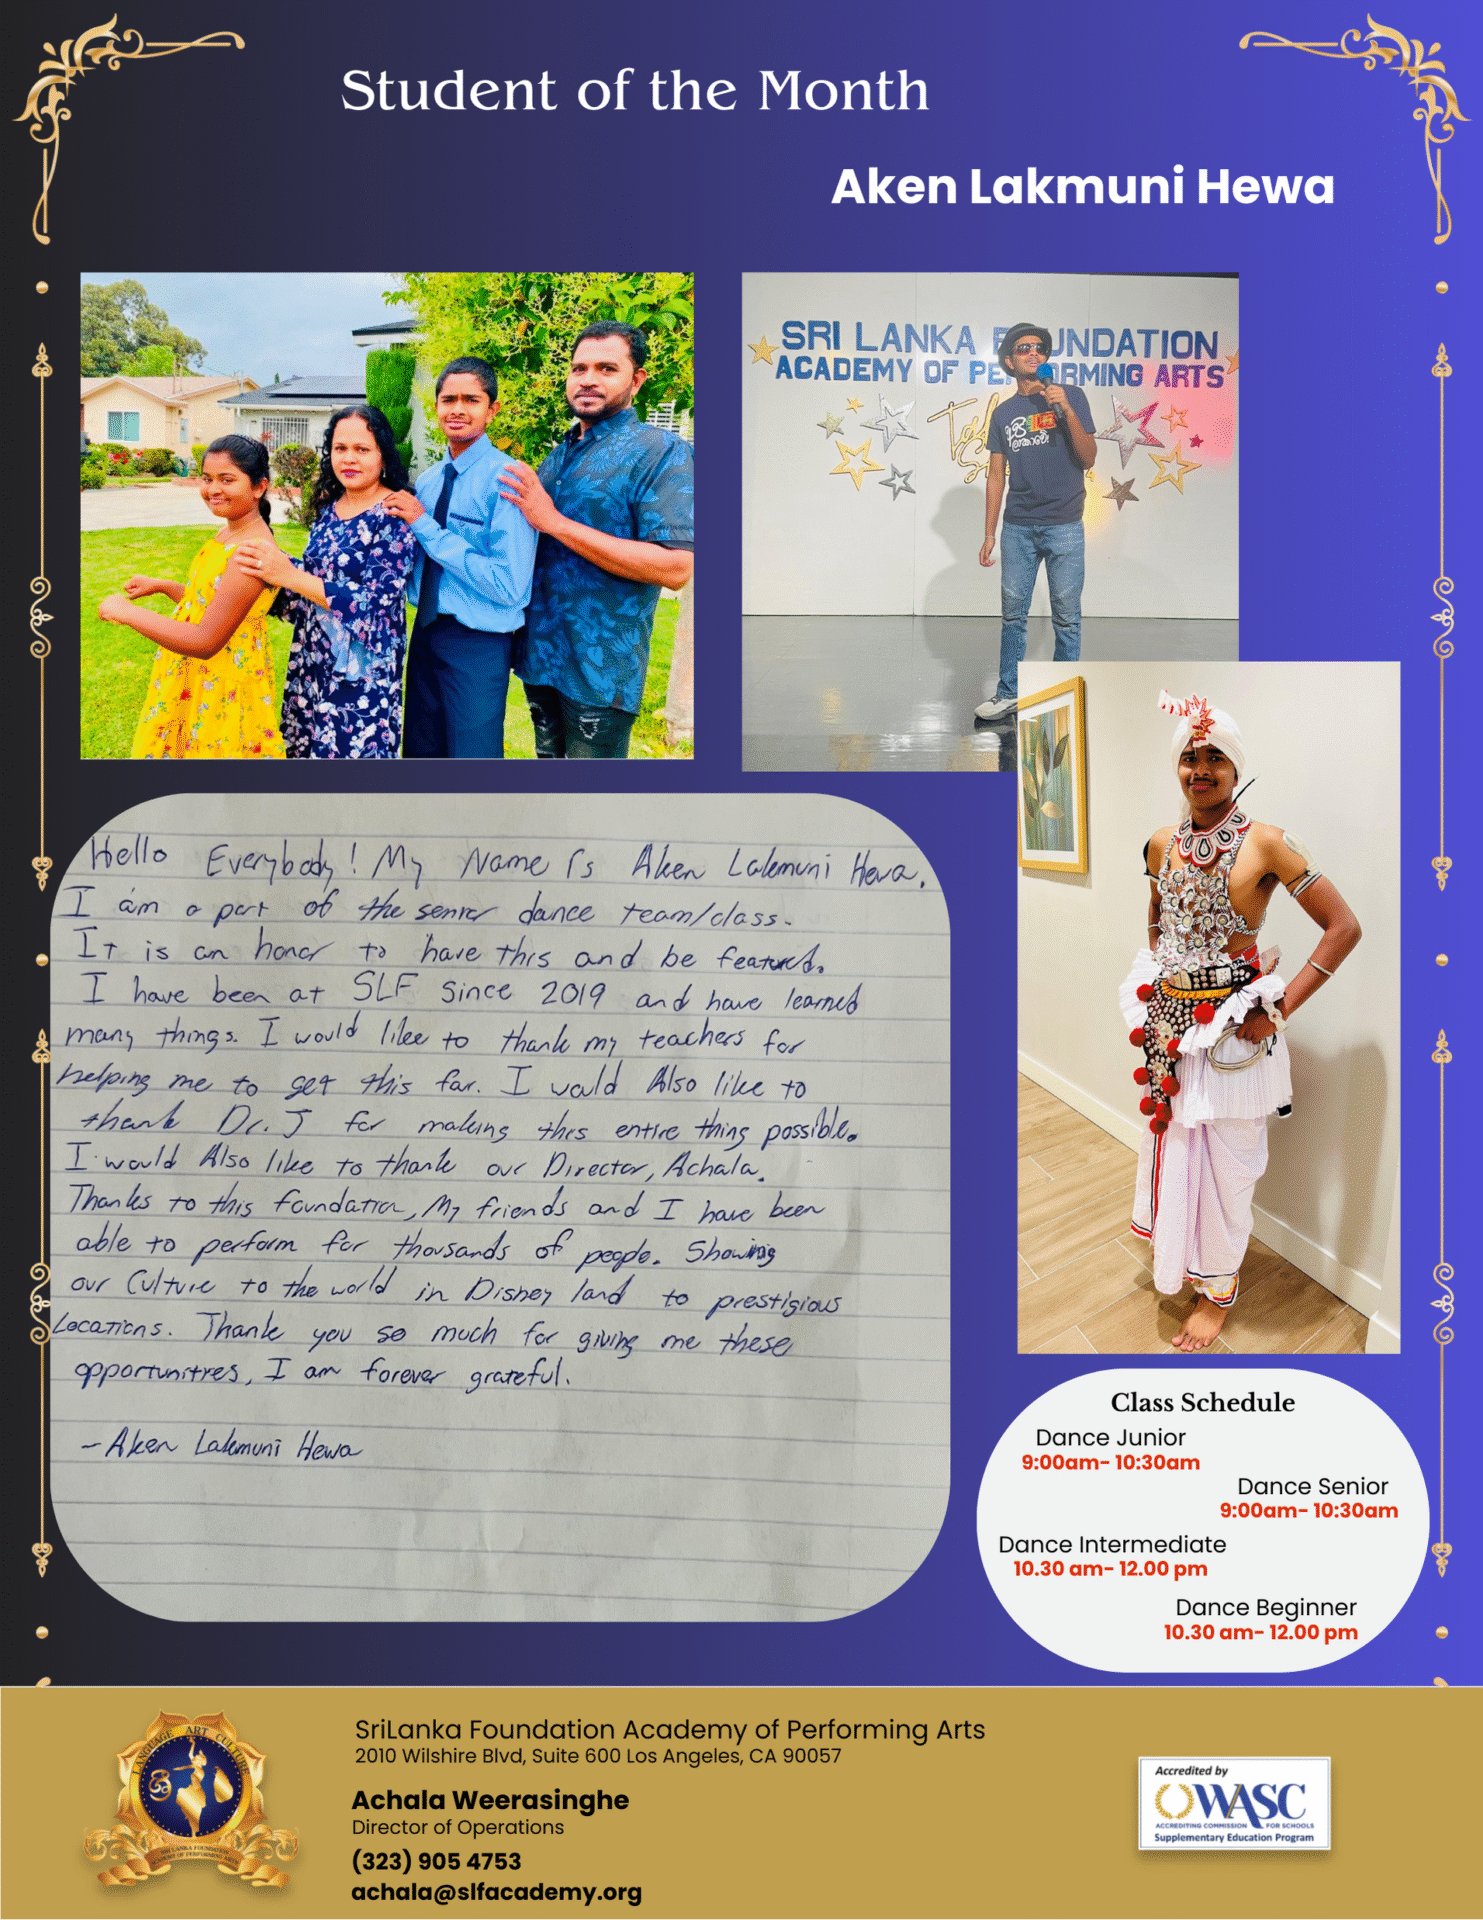 Student of the Month
Aken Lakmuni Hewa
SRI LANKA F UNDATION
ACADEMY OF PE ORMING ARTS
අපි
ලංකාවේ
Hello Everybody! My Name Is Aken Lakmuni Hewa.
I am a part of the senior dance team/class.
It is an honor to have this and be featured.
I have been at SLF Since 2019 and have learned
many things. I would like to thank my teachers for
helping me to get this far. I would Also like to
thank Dr. J for making this entire thing possible.
I would Also like to thank our Director, Achala.
Thanks to this foundation, My friends and I have been
able to perform for thousands of people. Showing
our Culture to the world in Disney land to prestigious
Locations. Thank you so much for giving me these
opportunities, I am forever grateful.
-Aken Lakmuni Hewa
Class Schedule
Dance Junior
9:00am- 10:30am
Dance Senior
9:00am- 10:30am
Dance Intermediate
10.30 am- 12.00 pm
Dance Beginner
10.30 am- 12.00 pm
LANGUAGE ART CULTURE
SRI LANKA FOUNDATION
ACADEMY OF PERFORMING ARTS
SriLanka Foundation Academy of Performing Arts
2010 Wilshire Blvd, Suite 600 Los Angeles, CA 90057
Achala Weerasinghe
Director of Operations
(323) 905 4753
achala@slfacademy.org
Accredited by
WASC
ACCREDITING COMMISSION FOR SCHOOLS
Supplementary Education Program